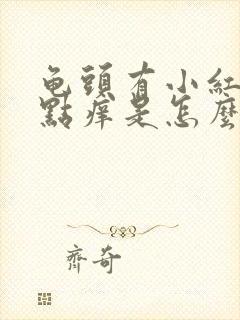 龟頭有小紅
點痒是怎麼
齊奇